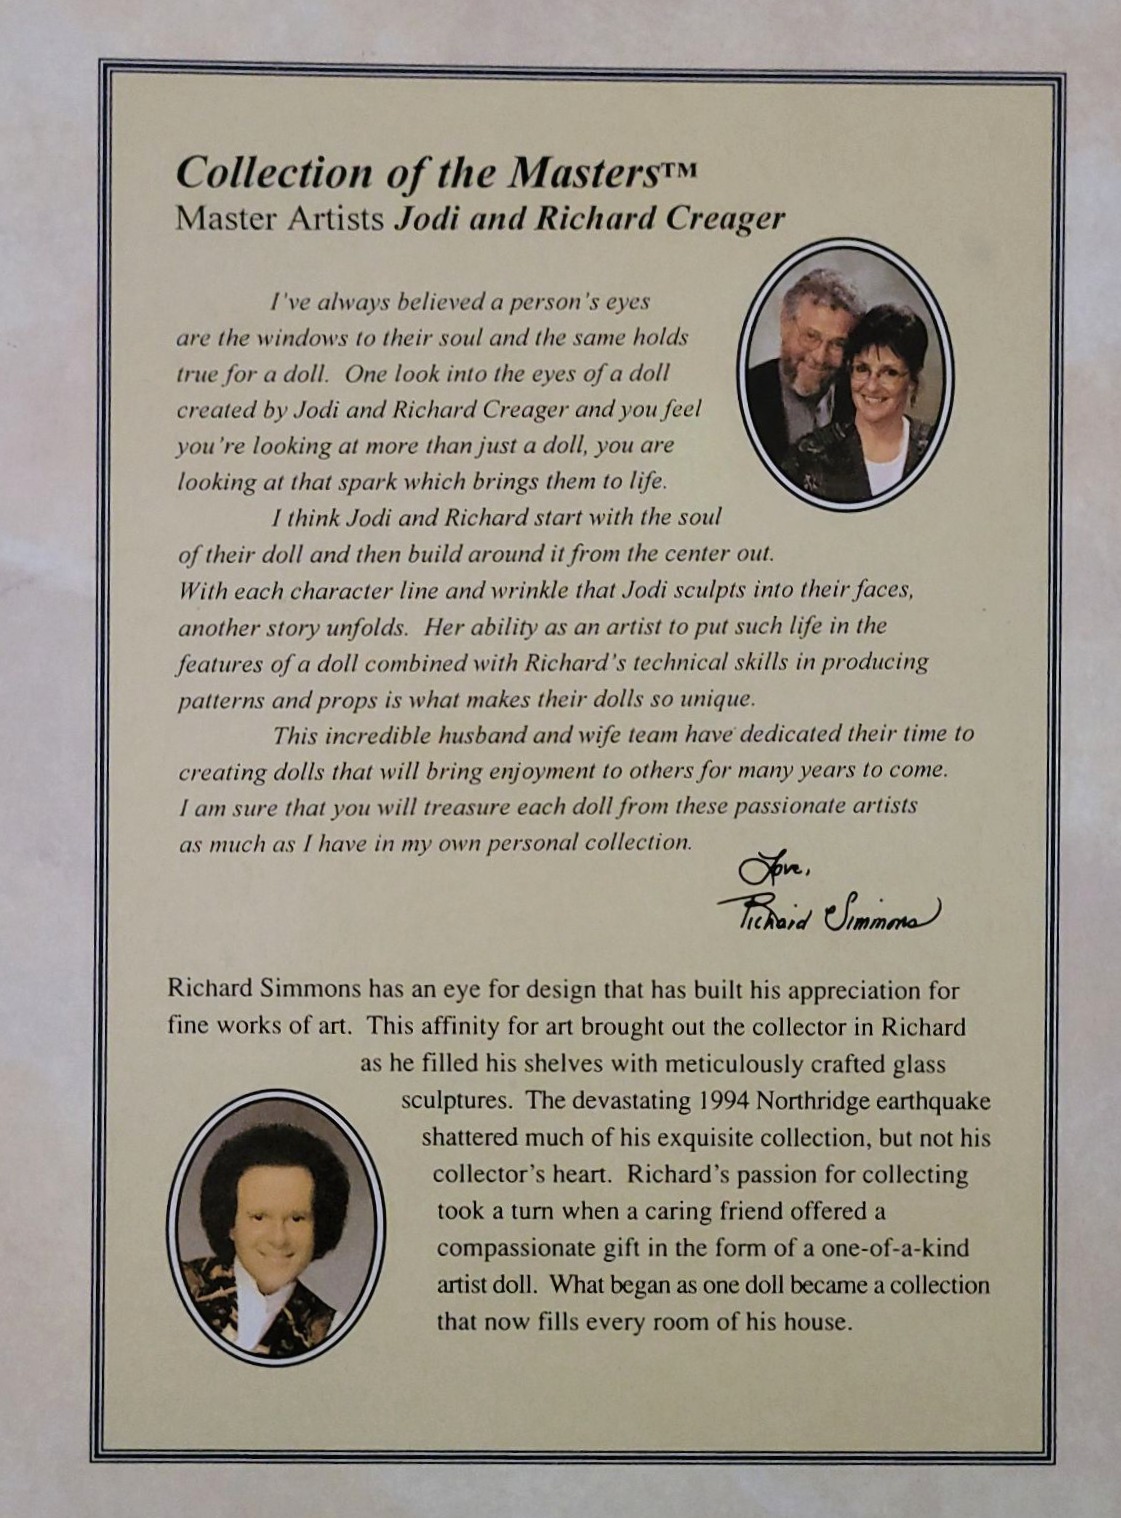 Collection of the Masters™
Master Artists Jodi and Richard Creager
I've always believed a person's eyes
are the windows to their soul and the same holds
true for a doll. One look into the eyes of a doll
created by Jodi and Richard Creager and you feel
you're looking at more than just a doll, you are
looking at that spark which brings them to life.
I think Jodi and Richard start with the soul
of their doll and then build around it from the center out.
With each character line and wrinkle that Jodi sculpts into their faces,
another story unfolds. Her ability as an artist to put such life in the
features of a doll combined with Richard's technical skills in producing
patterns and props is what makes their dolls so unique.
This incredible husband and wife team have dedicated their time to
creating dolls that will bring enjoyment to others for many years to come.
I am sure that you will treasure each doll from these passionate artists
as much as I have in my own personal collection.
Love,
Richard Simmons
Richard Simmons has an eye for design that has built his appreciation for
fine works of art. This affinity for art brought out the collector in Richard
as he filled his shelves with meticulously crafted glass
sculptures. The devastating 1994 Northridge earthquake
shattered much of his exquisite collection, but not his
collector's heart. Richard's passion for collecting
took a turn when a caring friend offered a
compassionate gift in the form of a one-of-a-kind
artist doll. What began as one doll became a collection
that now fills every room of his house.